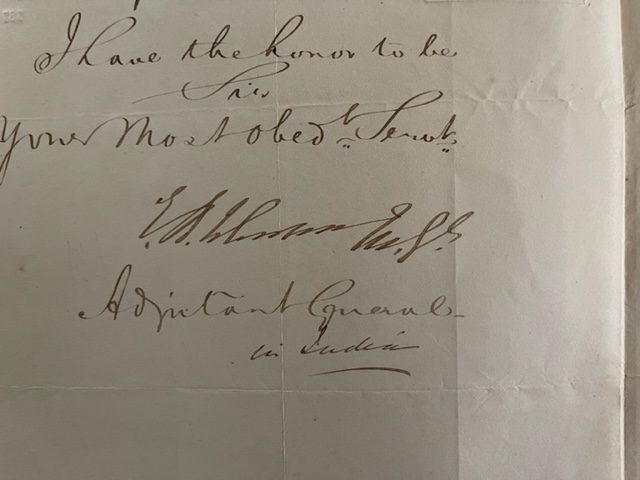 I have the honor to be
Sir
Your Most Obed.t Servt.
E. B. Johnson M.G.
Adjutant General
in India